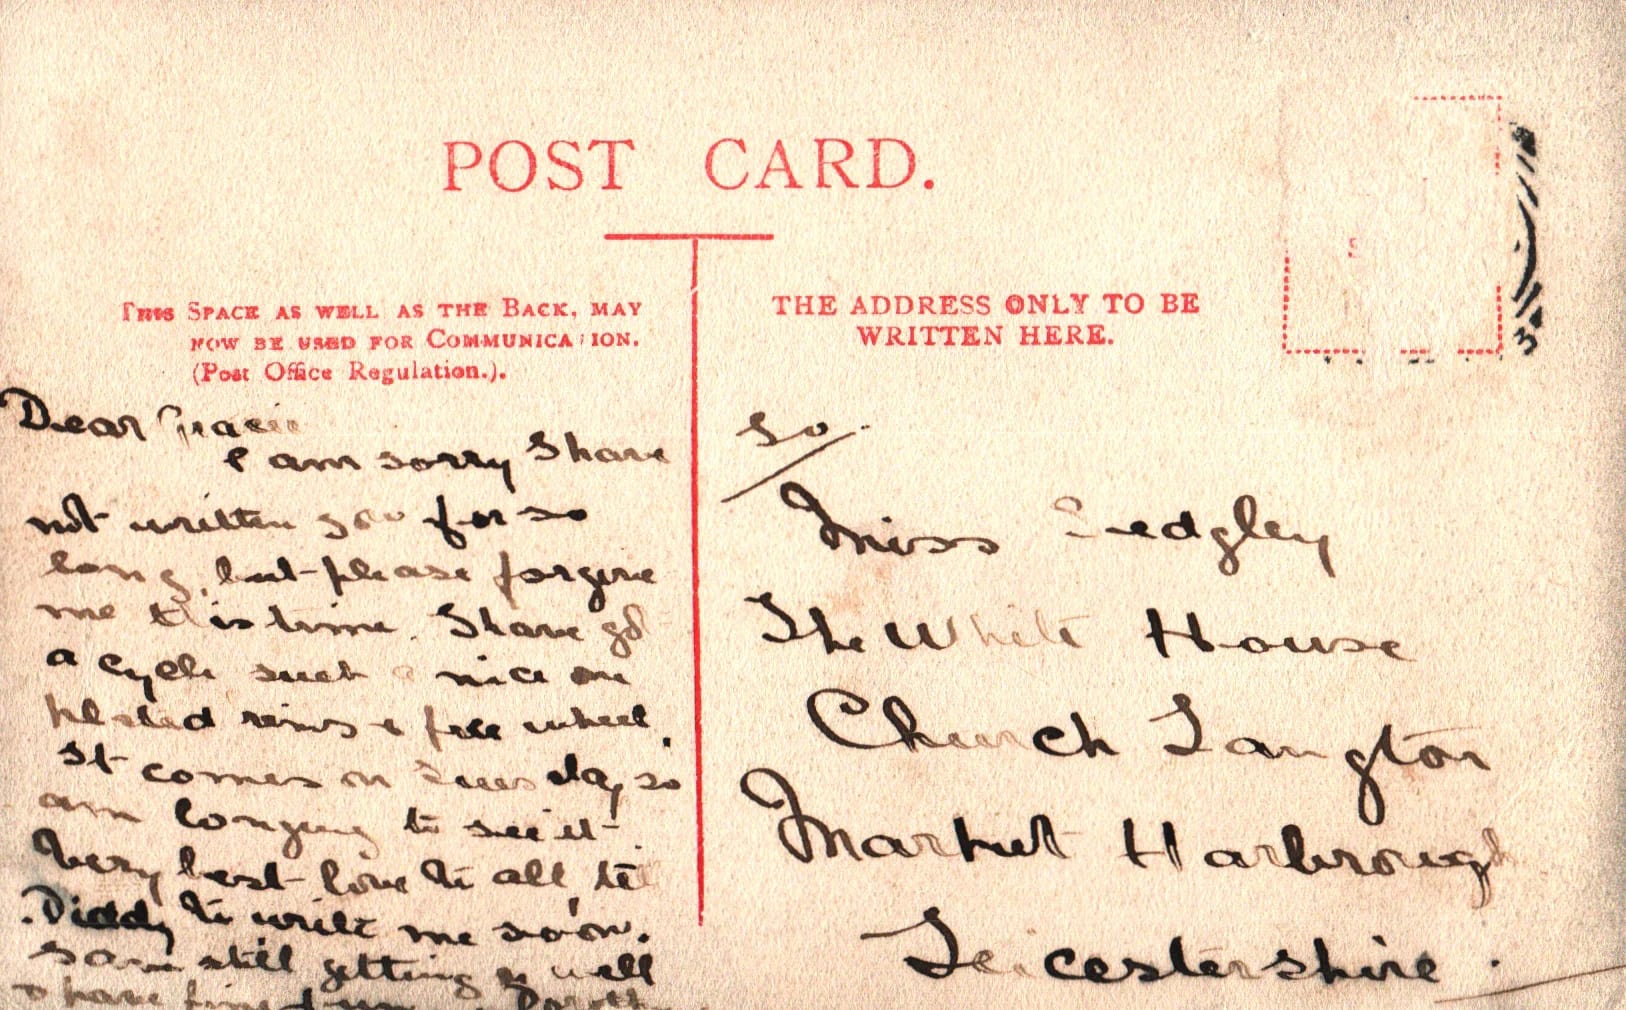 POST CARD.
THIS SPACE AS WELL AS THE BACK, MAY
NOW BE USED FOR COMMUNICATION.
(Post Office Regulation.).
THE ADDRESS ONLY TO BE
WRITTEN HERE.
Dear Gracie
I am sorry I have
not written you for so
long, but please forgive
me this time. I have got
a cycle such a nice one
plated rims & free wheel.
It comes on Tuesday, so
am longing to see it.
Very best love to all, tell
Diddy to write me soon.
I am still getting well
& have
Miss Sedgley
The White House
Church Langton
Market Harbrough
Leicestershire.